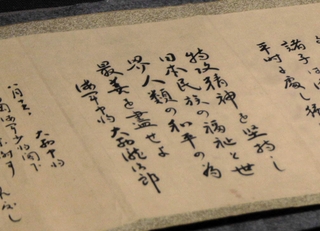 諸子は
平時に處し猶
特攻精神を堅持し
日本民族の福祉と世
界人類の和平の為
最善を盡せよ
海軍中将大西瀧治郎
大西中将